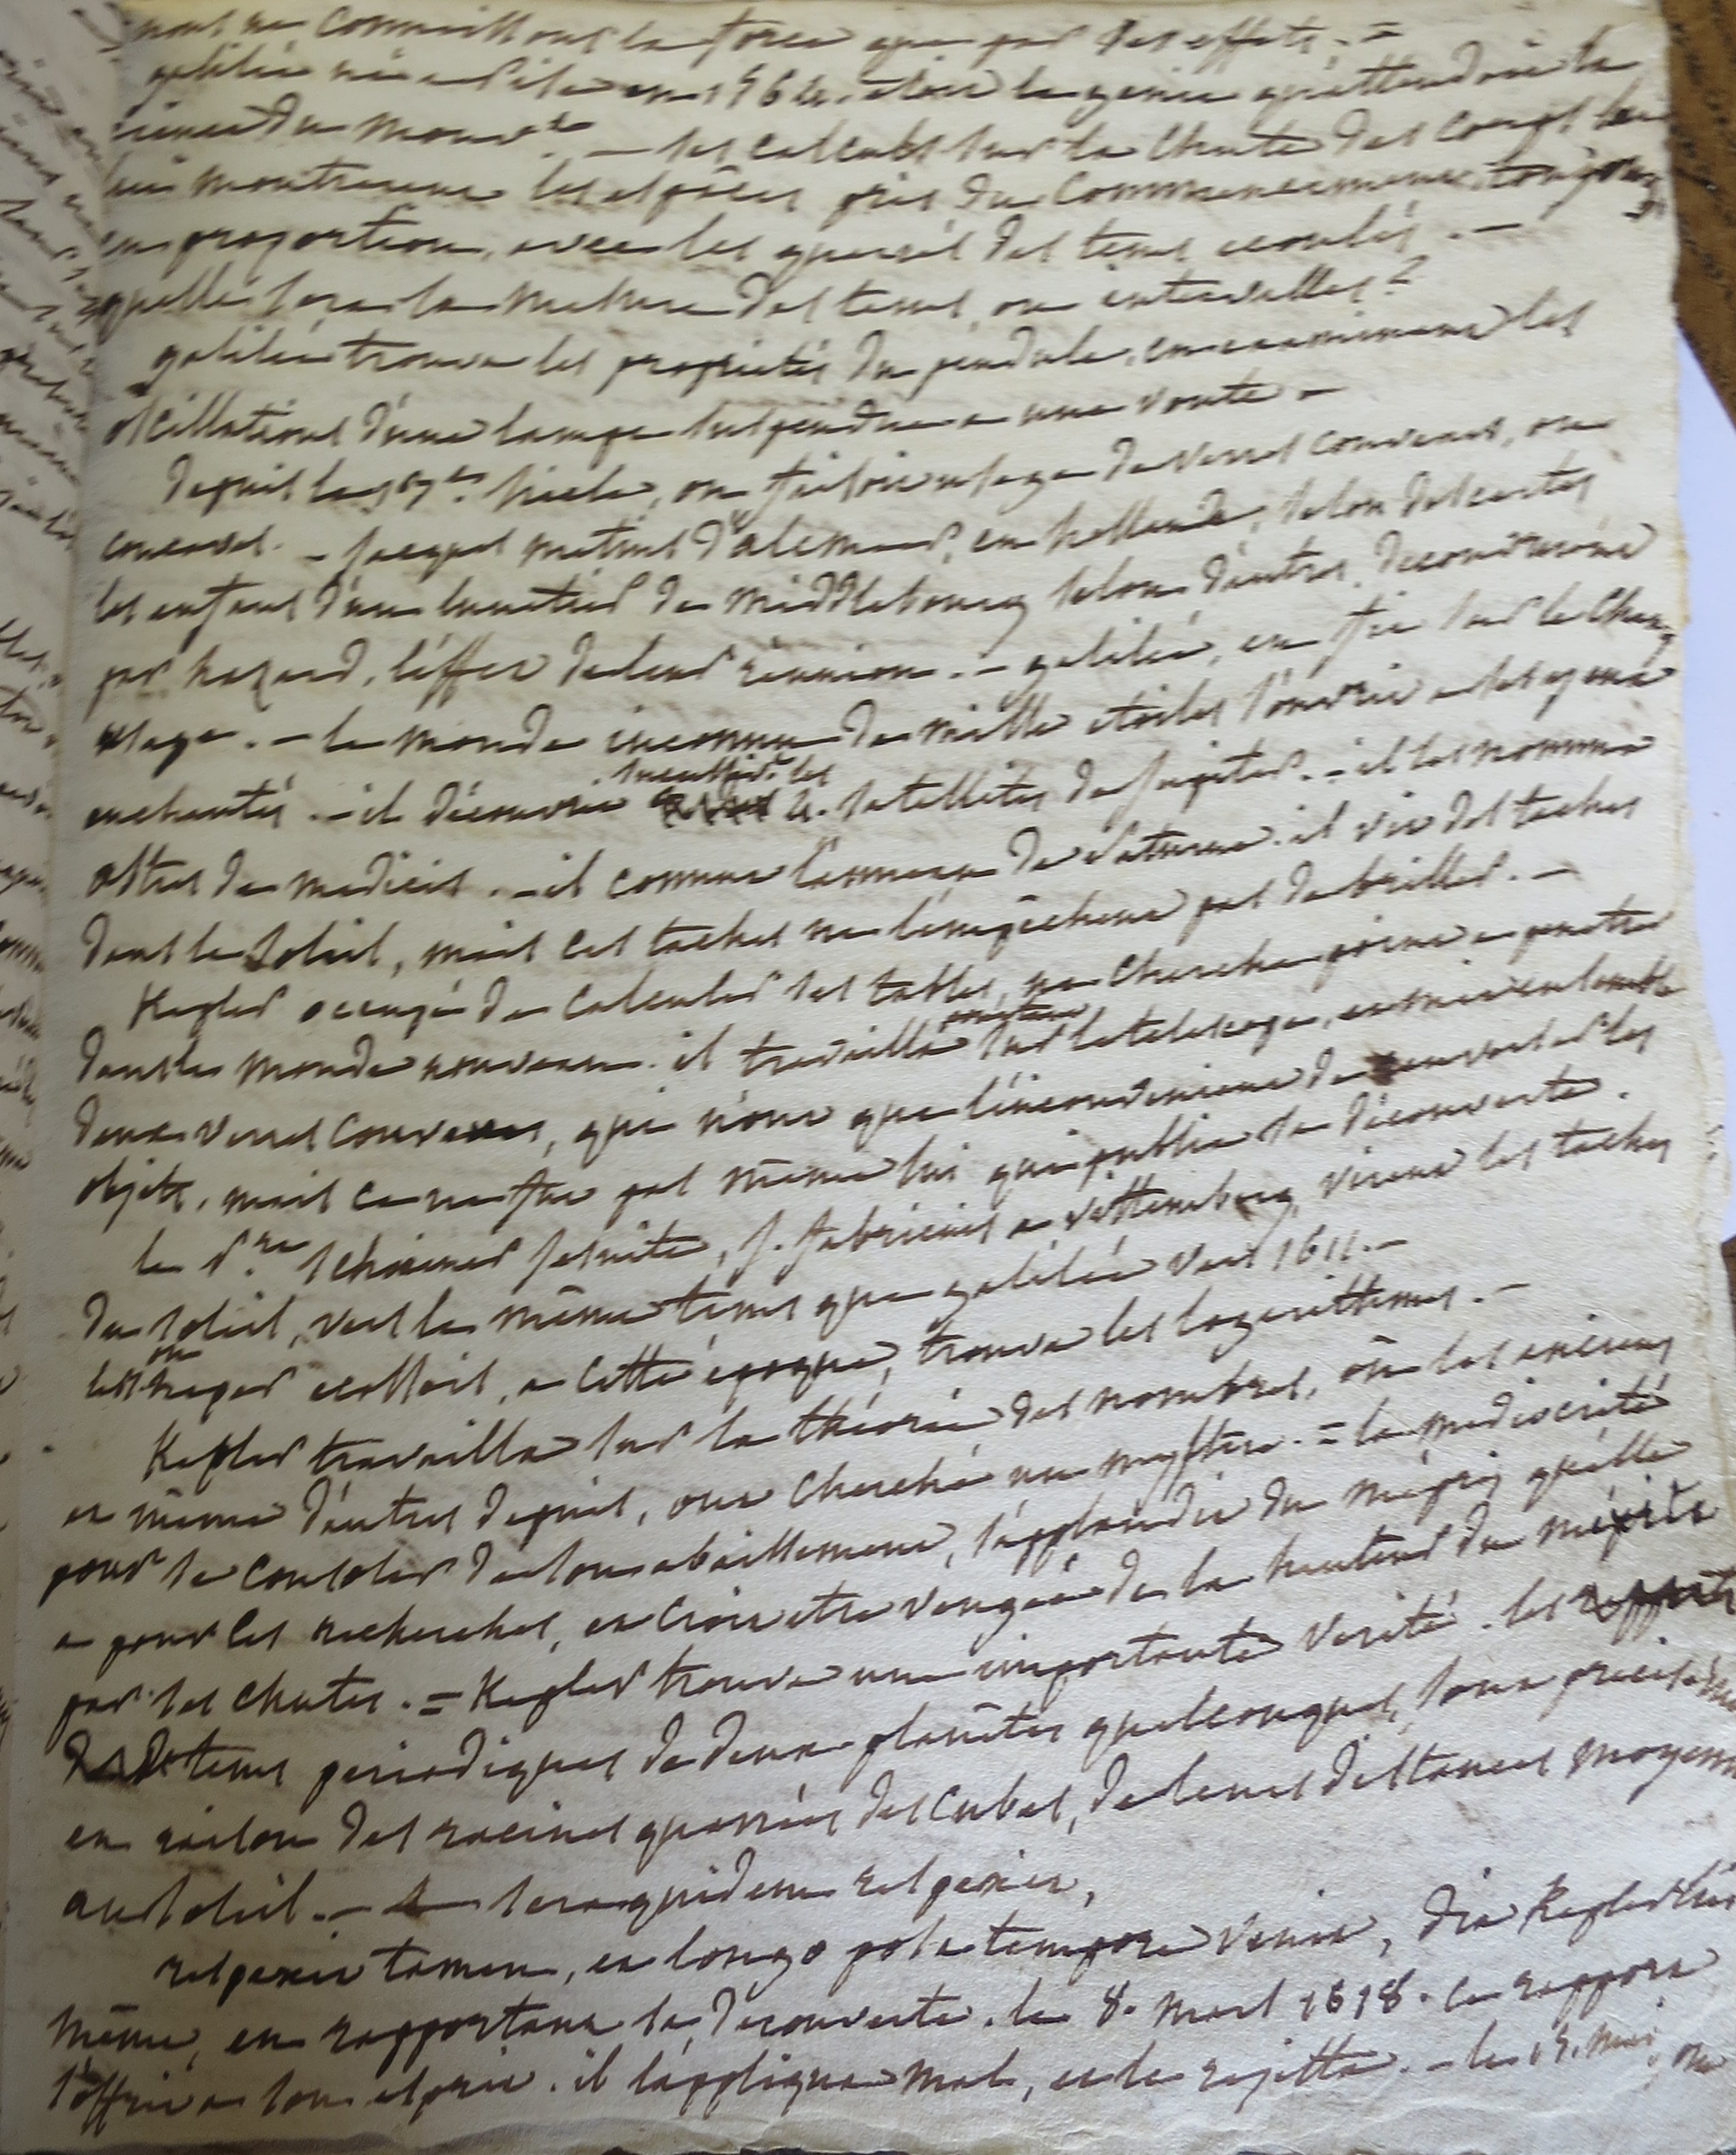 nous ne connaissons la force que par ses effets. =
galilée né a Pise en 1564. etoit le genie qu'attendoit la
science du monde. — ses calculs sur la chute des corps
lui montrerent les espaces pris du commencement, toujours
en proportion, avec les quarrés des tems ecoulés. —
quelle sera la mesure des tems, ou intervalles?
galilée trouva les proprietés du pendule, en examinant les
oscillations d'une lampe suspendue a une voute —
depuis le siecle, on faisoit usage de verres convexes, ou
concaves. — jacques metius d'alcmaer, en hollande, selon descartes
les enfans d'un lunetier de Middlebourg selon d'autres, decouvrirent
par hazard, l'effet de leur réunion. — galilée, en fit sur le champ
usage. — le monde inconnu de mille etoiles s'ouvrit a ses yeux
enchantés. — il découvrit successivt. les 4. satellites de jupiter. — il les nomma
astres de medicis. — il connut l'anneau de Saturne. il vit des taches
dans le soleil, mais ces taches ne l'empêchent pas de briller. —
Kepler occupé de calculer ses tables, ne chercha point a penetrer
dans le monde nouveau. il travailla pourtant sur le telescope, et mit ensemble
deux verres convexes, qui n'ont que l'inconvenient de renverser les
objets, mais ce ne fut pas même lui qui publia sa découverte.
le P.re scheiner jesuite, J. fabricius a vittemberg, virent les taches
du soleil, vers le même tems que galilée vers 1611. —
neper ecossois, a cette époque, trouva les logarithmes. —
Kepler travailla sur la théorie des nombres, où les anciens
et même d'autres depuis, ont cherché un mystere. = la mediocrité
pour se consoler de son abaissement, s'applaudit du mépris qu'elle
a pour ces recherches, et croit etre vengée de la hauteur du mérite
par ses chutes. = Kepler trouva une importante verité. les
tems periodiques de deux planètes quelconques, sont precisément
en raison des racines quarrées des cubes, de leurs distances moyennes
au soleil. — sera quidem respexit,
respexit tamen, et longo post tempore venit, dit Kepler lui
même, en rapportant sa découverte. le 8. mars 1618. ce rapport
s'offrit a son esprit. il l'appliqua mal, et le rejetta. — le 15. mai, on